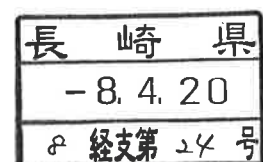 長崎県
-8.4.20
8経支第24号